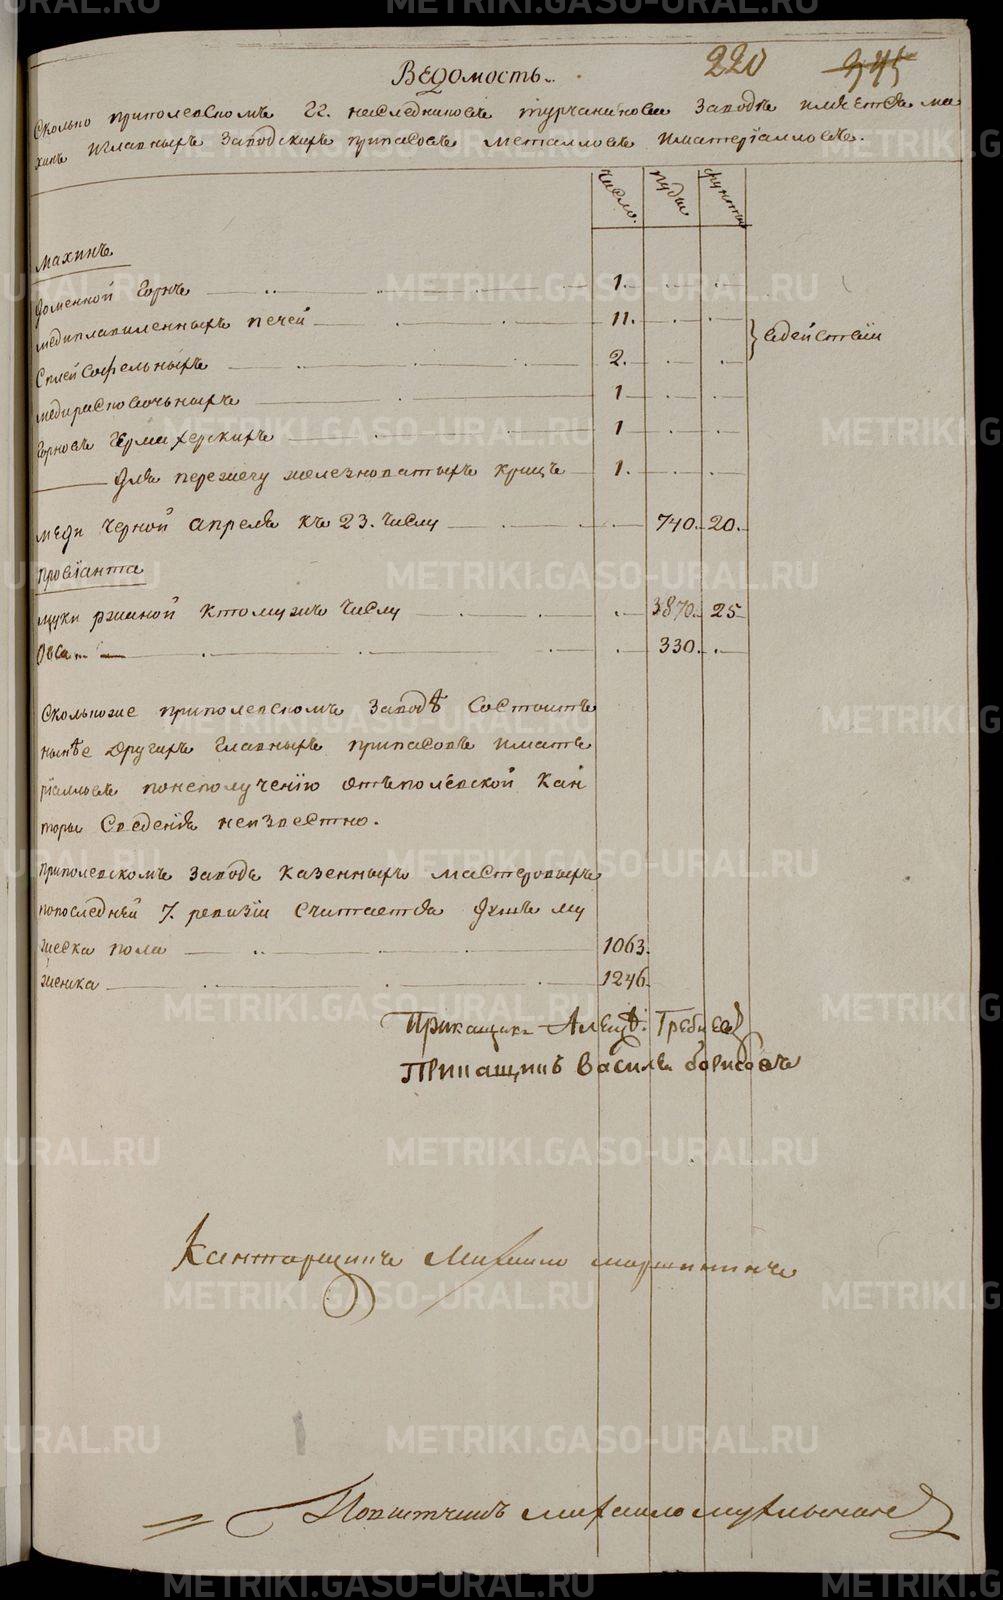 220 345
Ведомость.
Сколько приполевскомъ гг. наследниковъ турчанинова заводе имеется ма
хинъ иглавныхъ заводскихъ припасовъ металловъ иматерїалловъ.
число. пуды фунты
Махинъ
доменной горнъ 1.
медиплавиленныхъ печей 11.
Сплейсофельныхъ 2. вдействїи
медирасковочныхъ 1
горновъ гермахерскихъ 1
для пережегу железноватыхъ крицъ 1.
меди черной апреля къ 23. числу 740. 20.
провїанта
муки ржаной ктомужъ числу 3870. 25
Овса 330.
Сколькоже приполевскомъ заводѣ состоитъ
нынѣе другихъ главныхъ припасовъ имате
рїалловъ понеполученїю отъполевской кан
торы сведенїя неизвестно.
Приполевскомъ заводе казенныхъ мастеровыхъ
попоследней 7. ревизїи считается душъ му
жеска пола 1063.
женска 1246.
Прикащикъ Алексѣй
Прикащикъ Василей борисовъ
Канторщикъ Михаило
Повытчикъ михаило
METRIKI.GASO-URAL.RU